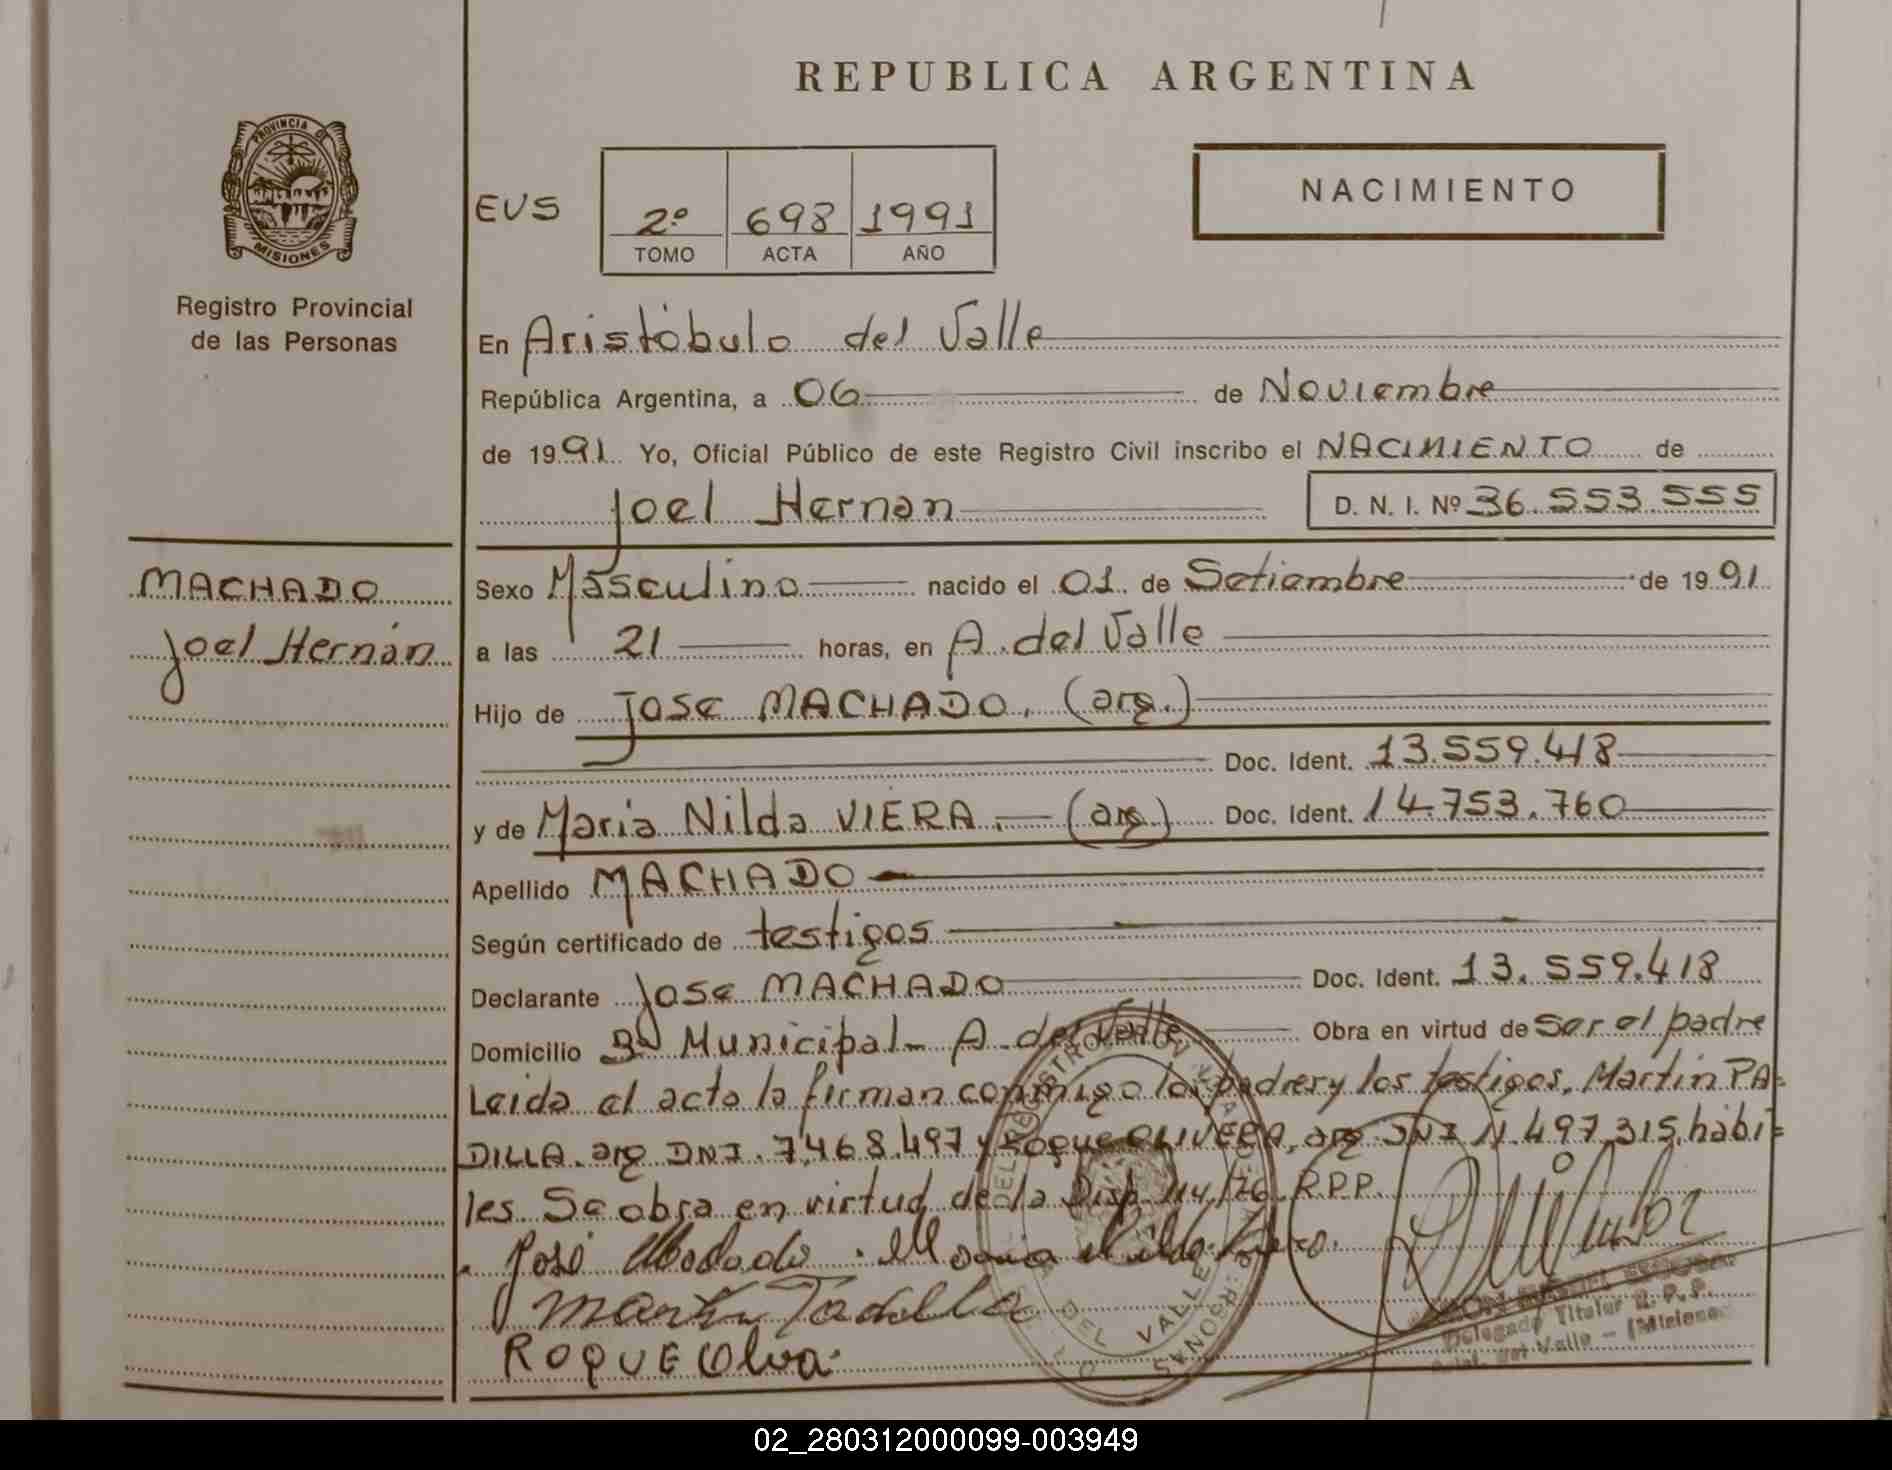 REPUBLICA ARGENTINA
PROVINCIA DE
MISIONES
Registro Provincial
de las Personas
NACIMIENTO
EVS
2º 698 1991
TOMO ACTA AÑO
En Aristóbulo del Valle
República Argentina, a 06 de Noviembre
de 1991 Yo, Oficial Público de este Registro Civil inscribo el NACIMIENTO de
Joel Hernan D. N. I. Nº 36.553.555
MACHADO
Joel Hernán
Sexo Masculino nacido el 01 de Setiembre de 1991
a las 21 horas, en A. del Valle
Hijo de Jose MACHADO. (arg.)
Doc. Ident. 13.559.418
y de Maria Nilda VIERA. (arg) Doc. Ident. 14.753.760
Apellido MACHADO
Según certificado de testigos
Declarante Jose MACHADO Doc. Ident. 13.559.418
Domicilio Bº Municipal - A. del Valle Obra en virtud de Ser el padre
Leida el acta la firman conmigo los padres y los testigos, Martin PA=
DILLA. arg DNI. 7.468.497 y Roque OLIVERA, arg. DNI 11.497.315, habi=
les. Se obra en virtud de la Disp. 114/76 R.P.P.
José Machado. Maria Nilda Viera.
Martin Padilla
ROQUE Olva.
DEL REGISTRO
DEL VALLE
Delegado Titular R. P. P.
del Valle - (Misiones)
02_280312000099-003949